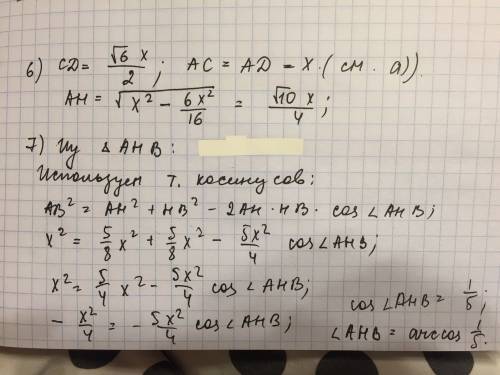 6) CD = √6 x / 2 ; AC = AD = x. (см. а)).
AH = √(x² - 6x²/16) = √10 x / 4 ;
7) Из △ AHB:
Используем т. косинусов:
AB² = AH² + HB² - 2AH · HB · cos∠AHB;
x² = 5/8 x² + 5/8 x² - 5x²/4 cos∠AHB;
x² = 5/4 x² - 5x²/4 cos∠AHB;
- x²/4 = - 5x²/4 cos∠AHB;
cos∠AHB = 1/5;
∠AHB = arccos 1/5.